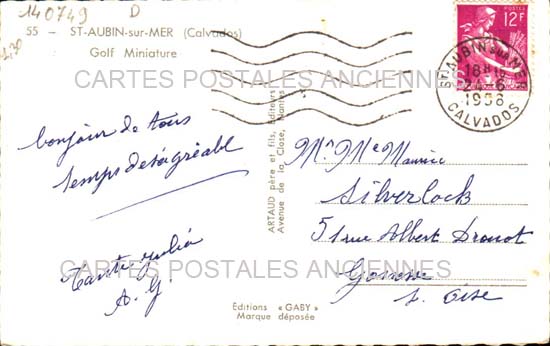 140749 D
55 - ST-AUBIN-sur-MER (Calvados)
Golf Miniature
POSTES
12F
ST-AUBIN sur MER
18H
1958
CALVADOS
CARTES POSTALES ANCIENNES
bonjour de tous
temps désagréable
Tante Julia
A. G.
ARTAUD père et fils, Éditeurs
Avenue de la Close, Nantes
Mr. Me Maurice
Silverlock
51 rue Albert Drouot
Gonesse
S. Oise
CARTES POSTALES ANCIENNES
Editions « GABY »
Marque déposée